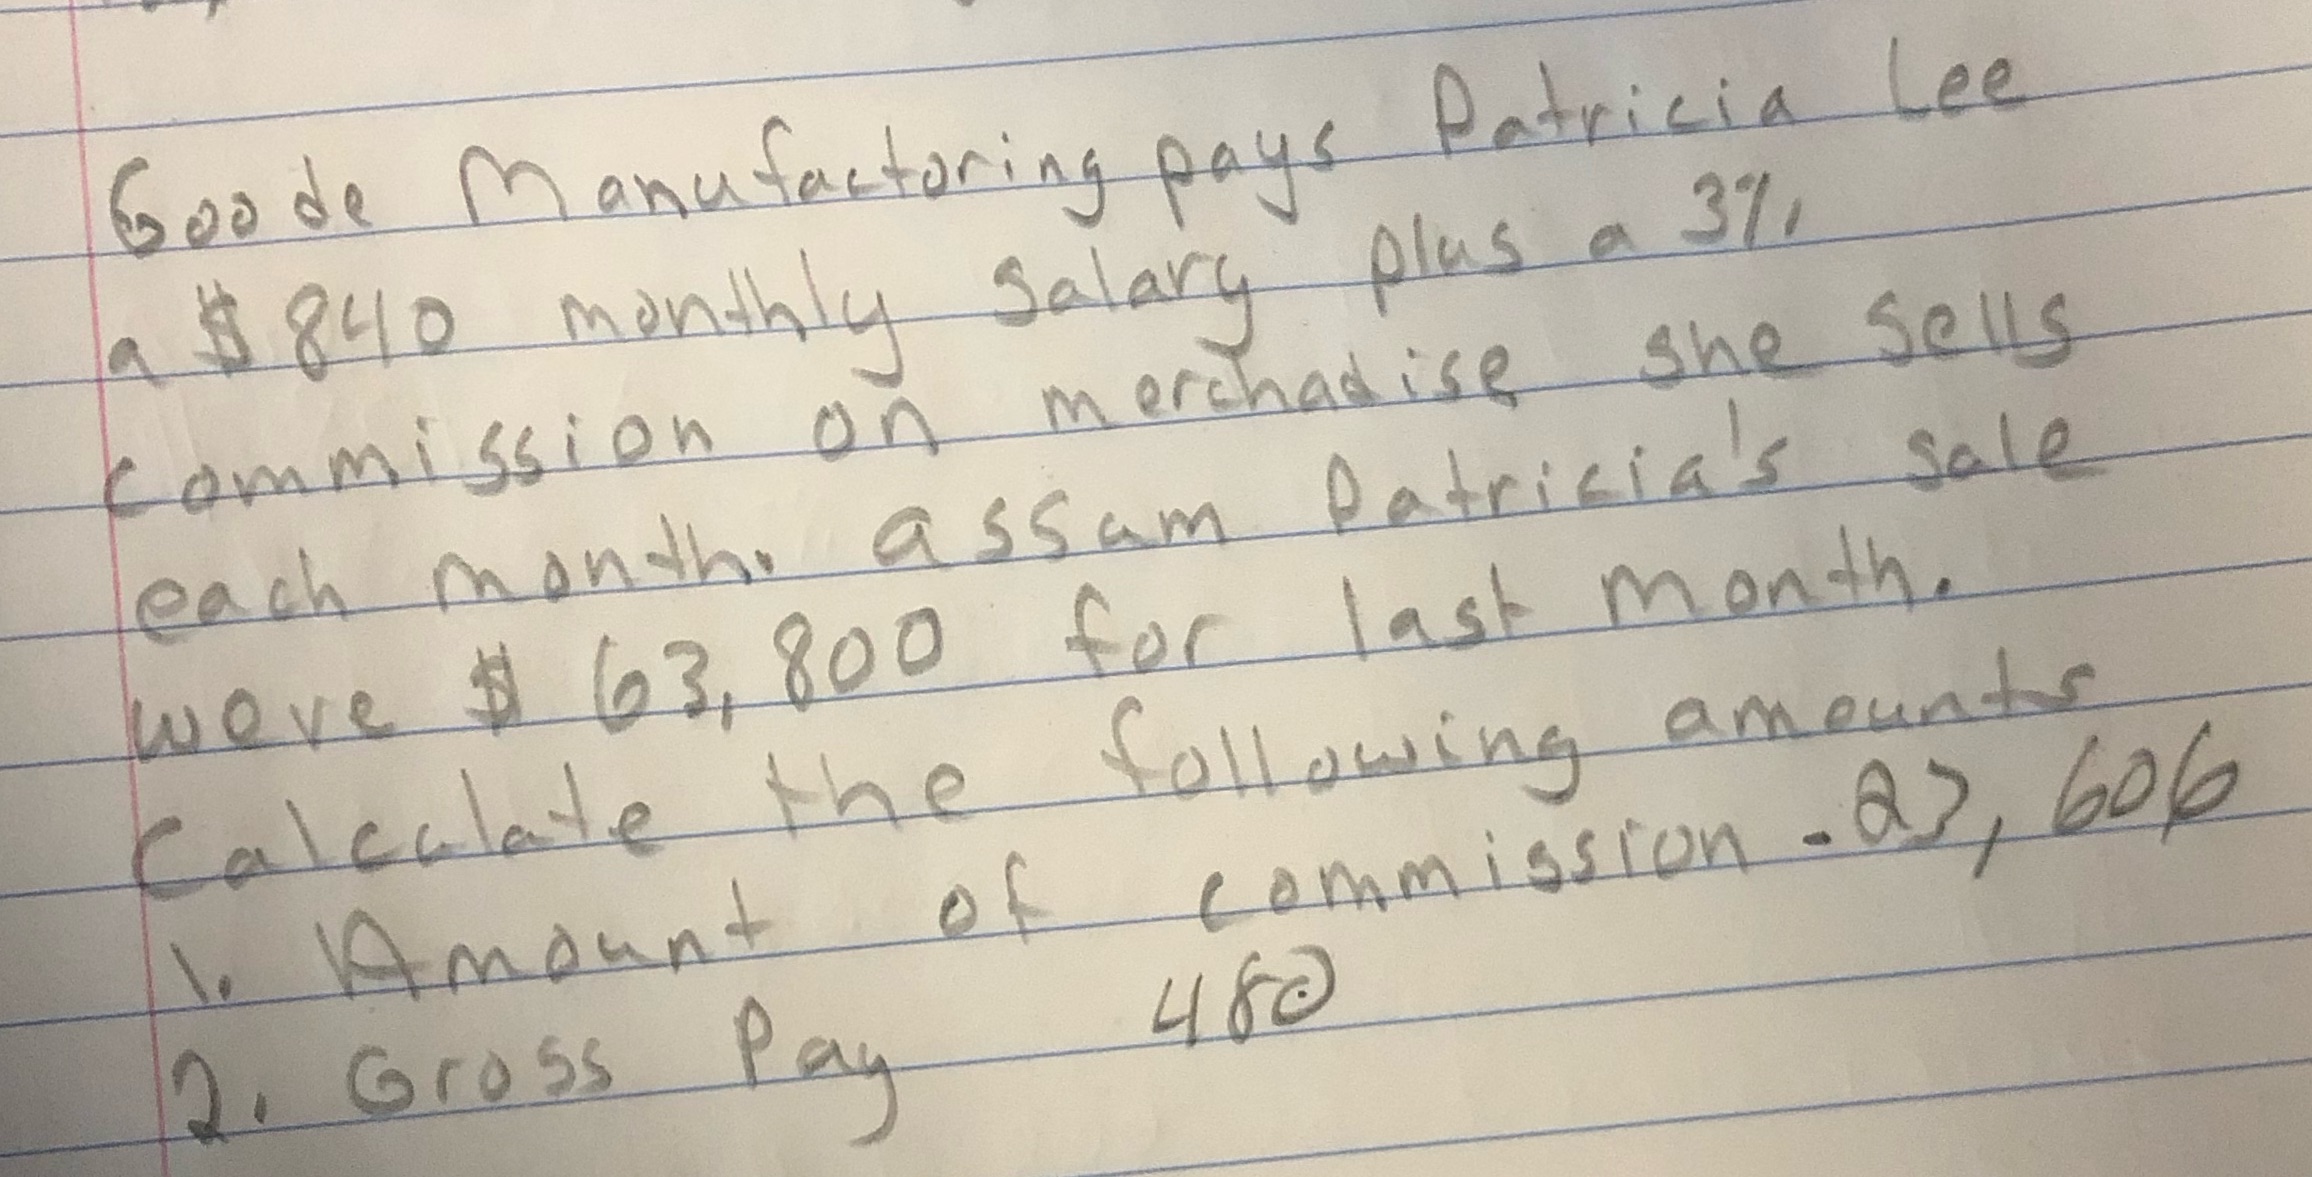 Goode Manufactoring pays Patricia Lee
a $840 monthly salary plus a 3%
commission on merchadise she sells
each month. assum Patricia's sale
were $63,800 for last month.
Calculate the following amounts
1. Amount of commission - 27,606
2. Gross Pay 480